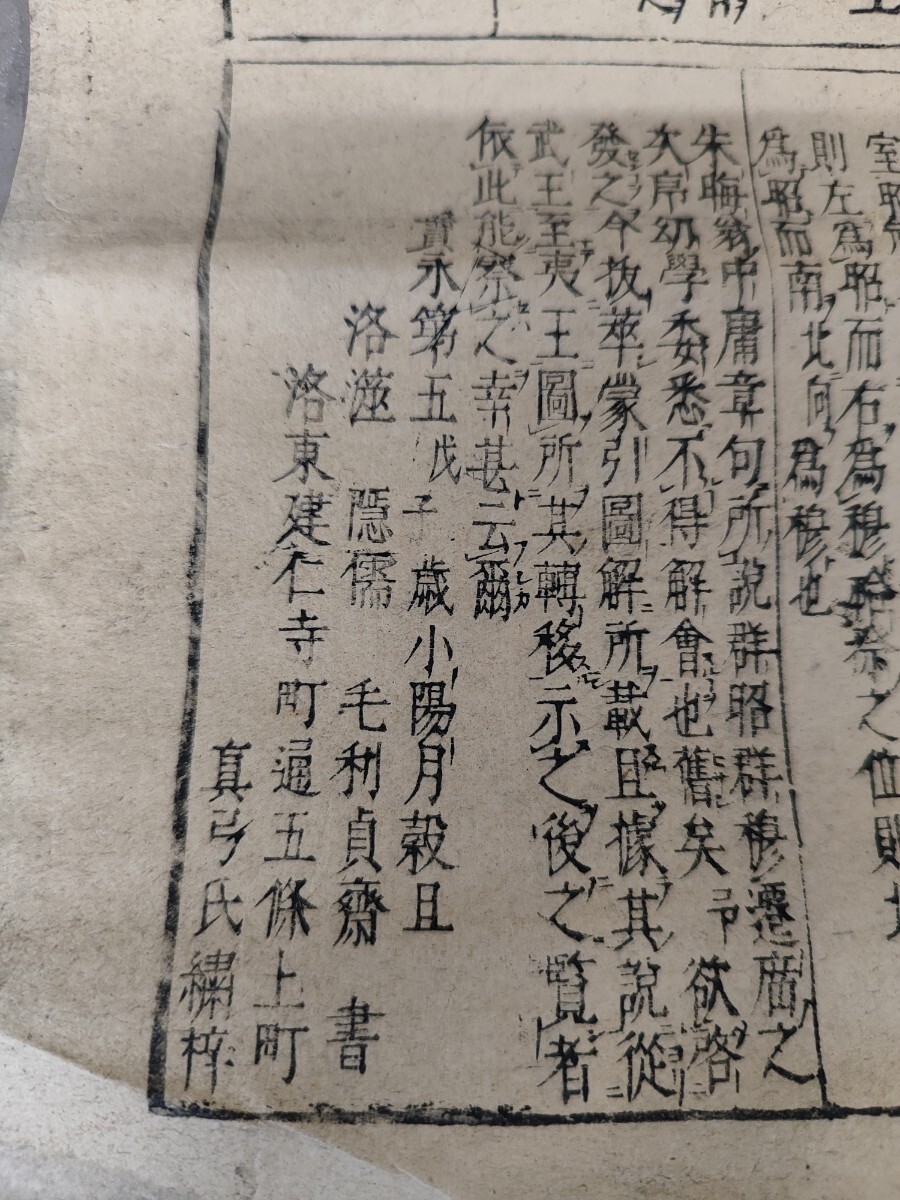 室昭
則左為昭而右為穆祫祭之位則
為昭而南北向為穆也
朱晦翁中庸章句所說群昭群穆遷庿之
次序幼學委悉不得解會也舊矣予欲啓
發之今抜萃蒙引圖解所載且據其說從
武王至夷王圖所其轉移示之後之覽者
依此能察之幸甚云爾
寳永第五戊子歳小陽月穀旦
洛澨 隠儒 毛利貞齋 書
洛東建仁寺町通五條上町
真弓氏繡梓